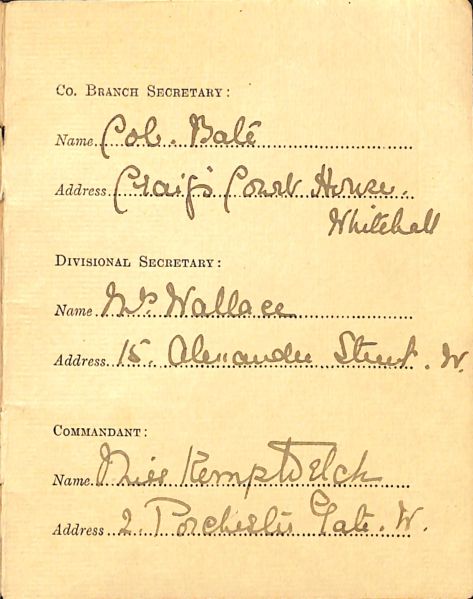 Co. Branch Secretary:
Name Col. Balé
Address Craig's Court House.
Whitehall
Divisional Secretary:
Name Mrs Wallace
Address 15. Alexander Street. W.
Commandant:
Name Miss Kemp Welch
Address 2. Porchester Gate. W.